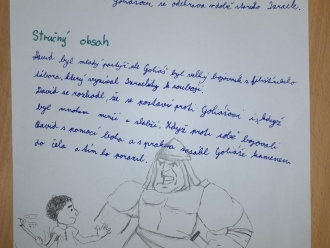 Goliášovi se odehrává v době starého Izraele.
Stručný obsah
David byl mladý pastýř, ale Goliáš byl velký bojovník z filištínského
tábora, který vyzýval Izraelity k souboji.
David se rozhodl, že se postaví proti Goliášovi, i když
byl mnohem menší a slabší. Když proti sobě bojovali
David s pomocí boha a s prakem zasáhl Goliáše kamenem
do čela a tím ho porazil.